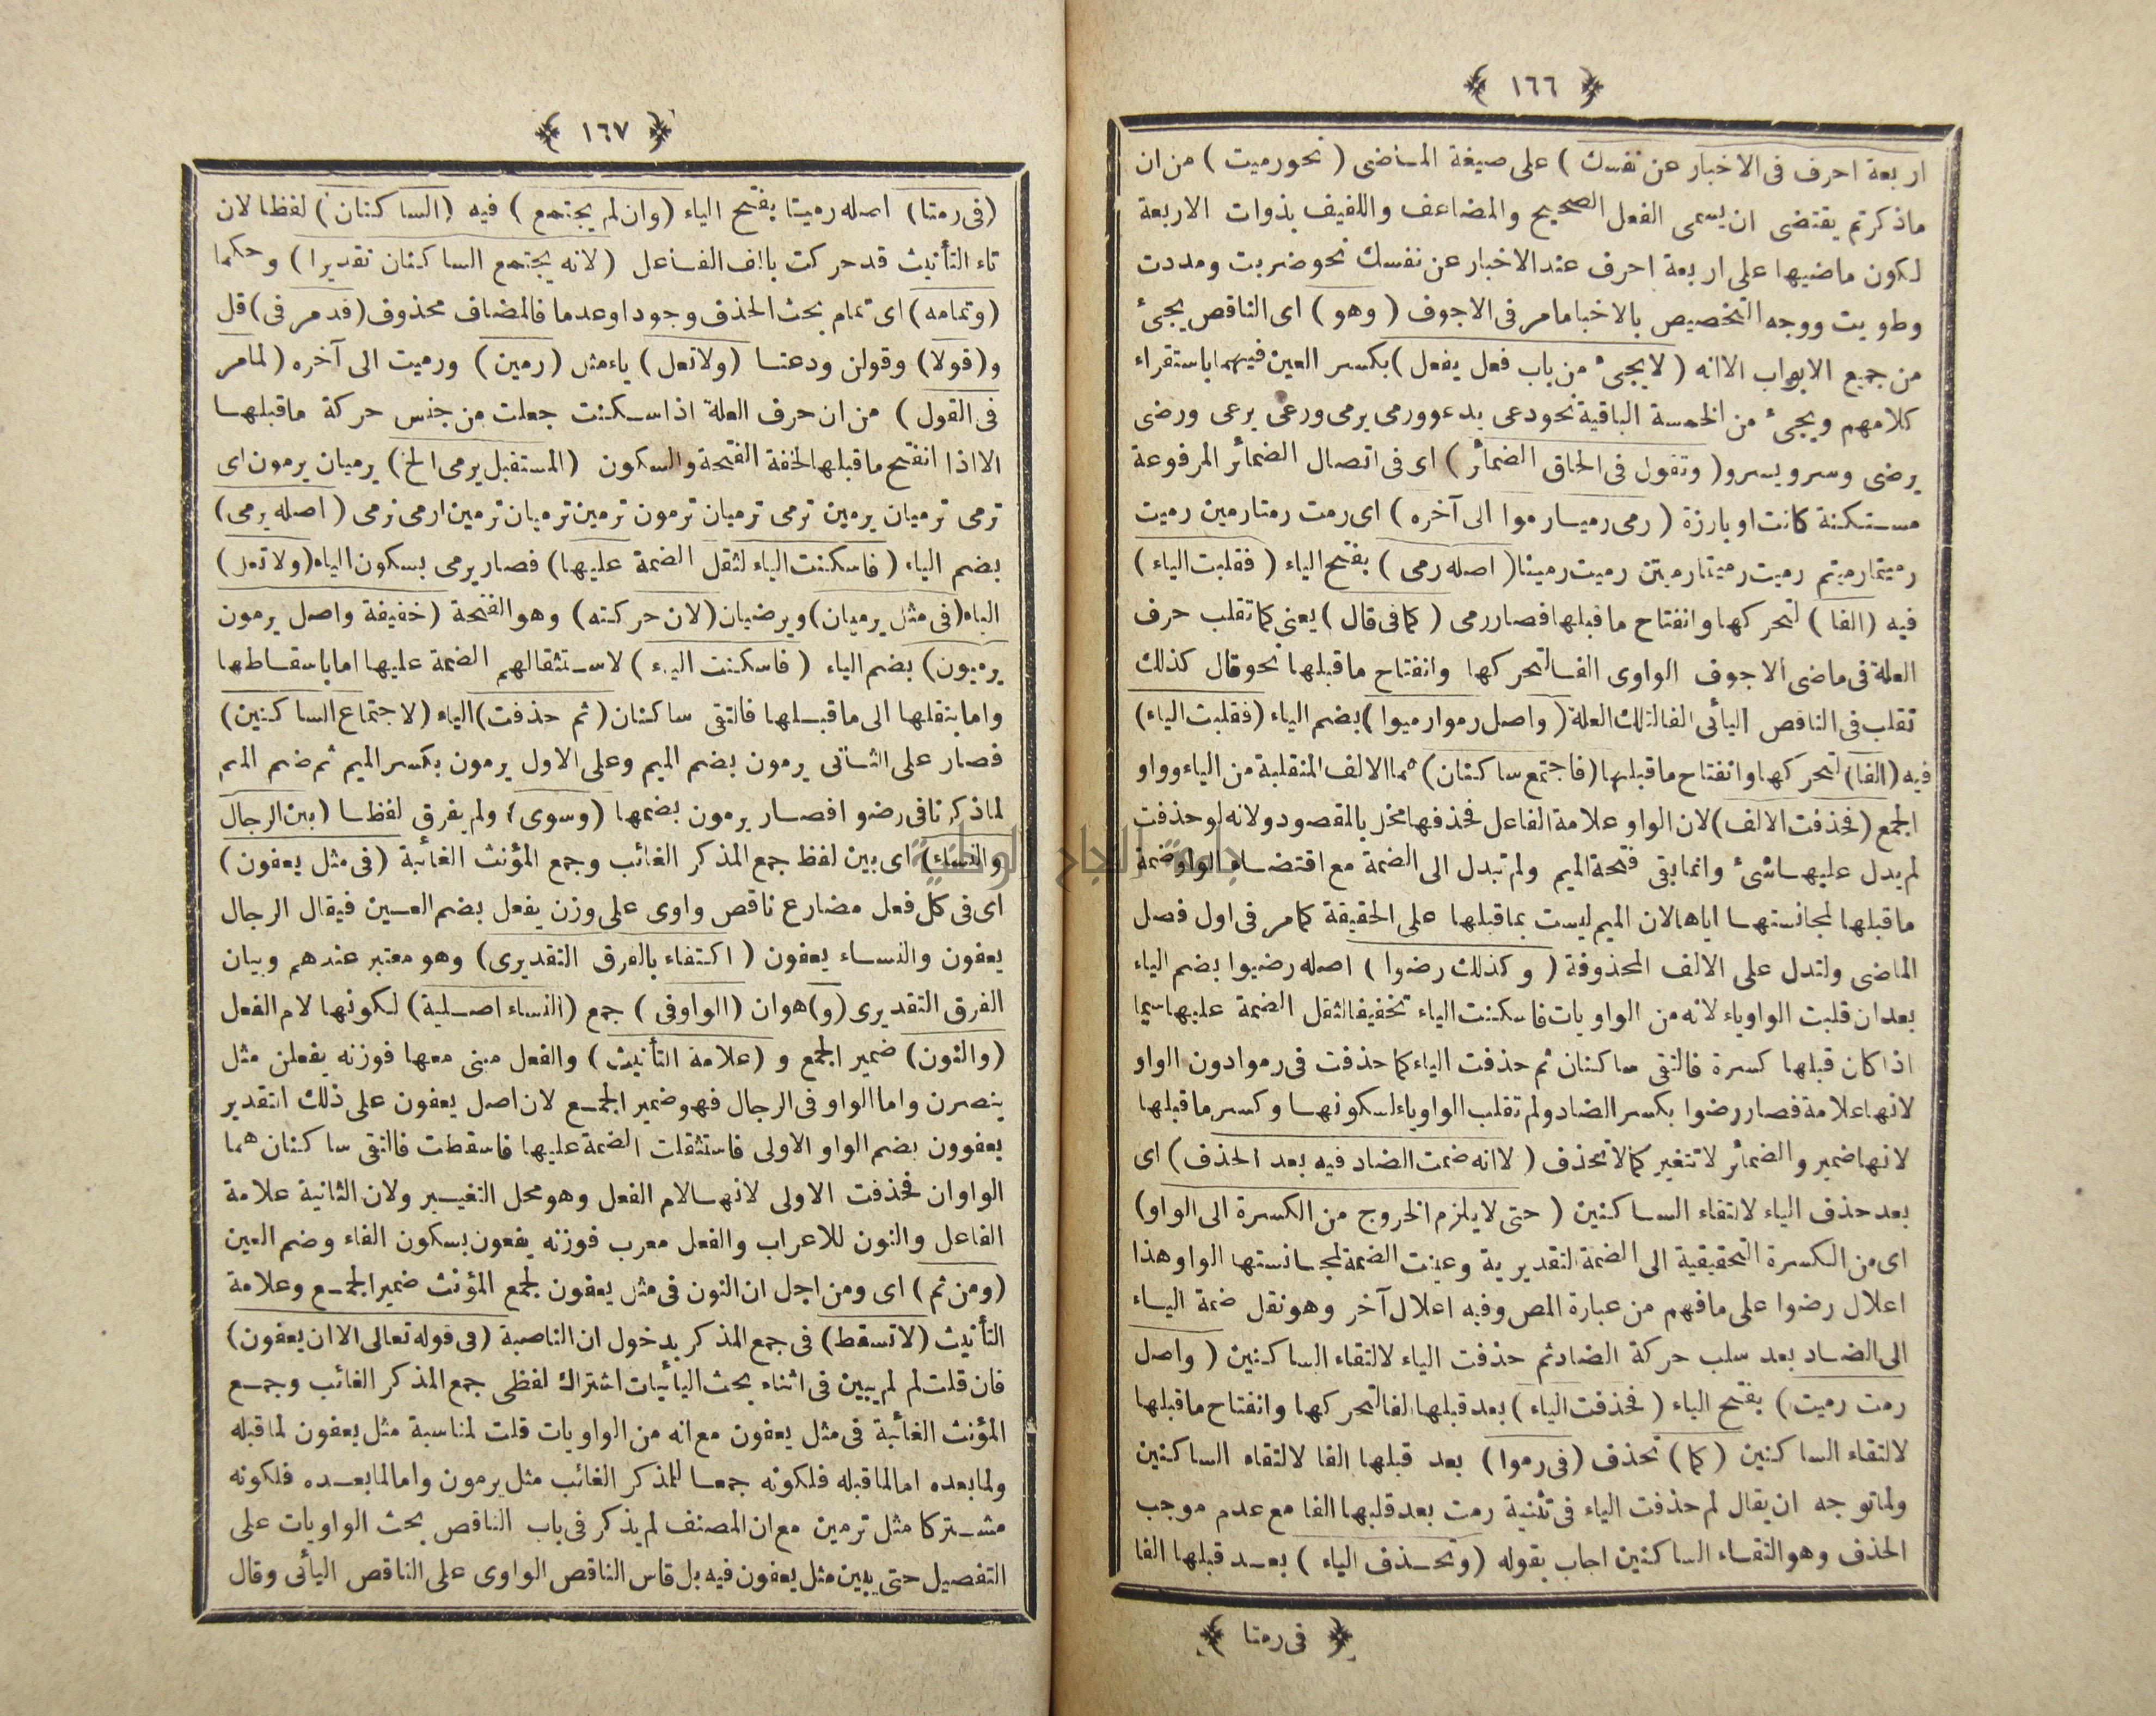 ﴿ ١٦٦ ﴾
اربعة احرف فى الاخبار عن نفسك ) على صيغة الماضى ( نحو رميت ) من ان
ماذكرتم يقتضى ان يسمى الفعل الصحيح والمضاعف واللفيف بذوات الاربعة
لكون ماضيها على اربعة احرف عند الاخبار عن نفسك نحو ضربت ومددت
وطويت ووجه التخصيص بالاخبا مامر فى الاجوف ( وهو ) اى الناقص يجىء
من جميع الابواب الاانه ( لايجىء من باب فعل يفعل ) بكسر العين فيهما باستقراء
كلامهم ويجىء من الخمسة الباقية نحو دعى يدعو ورمى يرمى ورعى يرعى ورضى
يرضى وسرو يسرو ( وتقول فى الحاق الضمائر ) اى فى اتصال الضمائر المرفوعة
مستكنة كانت او بارزة ( رمى رميا رموا الى آخره ) اى رمت رمتا رمين رميت
رميتما رميتم رميت رميتما رميتن رميت رمينا ( اصله رمى ) بفتح الياء ( فقلبت الياء )
فيه ( الفا ) لتحركها وانفتاح ماقبلها فصار رمى ( كما فى قال ) يعنى كما تقلب حرف
العلة فى ماضى الاجوف الواوى الفا لتحركها وانفتاح ماقبلها نحو قال كذلك
تقلب فى الناقص اليائى الفا لتلك العلة ( واصل رموا رميوا ) بضم الياء ( فقلبت الياء )
فيه ( الفا ) لتحركها وانفتاح ماقبلها ( فاجتمع ساكنان ) هما الالف المنقلبة من الياء وواو
الجمع ( فحذفت الالف ) لان الواو علامة الفاعل فحذفها مخل بالمقصود ولانه لو حذفت
لم يدل عليها شئ وانما بقى فتحة الميم ولم تبدل الى الضمة مع اقتضاء الواو ضمة
ماقبلها لمجانستها اياها لان الميم ليست بماقبلها على الحقيقة كمامر فى اول فصل
الماضى ولتدل على الالف المحذوفة ( وكذلك رضوا ) اصله رضيوا بضم الياء
بعد ان قلبت الواو ياء لانه من الواويات فاسكنت الياء تخفيفا لثقل الضمة عليها سيما
اذا كان قبلها كسرة فالتقى ساكنان ثم حذفت الياء كما حذفت فى رموا دون الواو
لانها علامة فصار رضوا بكسر الضاد ولم تقلب الواو ياء لسكونها وكسر ماقبلها
لانها ضمير والضمائر لا تتغير كما لاتحذف ( لاانه ضمت الضاد فيه بعد الحذف ) اى
بعد حذف الياء لالتقاء الساكنين ( حتى لايلزم الخروج من الكسرة الى الواو )
اى من الكسرة التحقيقية الى الضمة التقديرية وعينت الضمة لمجانستها الواو هذا
اعلال رضوا على مافهم من عبارة المص وفيه اعلال آخر وهو نقل ضمة الياء
الى الضاد بعد سلب حركة الضاد ثم حذفت الياء لالتقاء الساكنين ( واصل
رمت رميت ) بفتح الياء ( فحذفت الياء ) بعد قبلها الفا لتحركها وانفتاح ماقبلها
لالتقاء الساكنين ( كما ) تحذف ( فى رموا ) بعد قبلها الفا لالتقاء الساكنين
ولما توجه ان يقال لم حذفت الياء فى تثنية رمت بعد قلبها الفا مع عدم موجب
الحذف وهو التقاء الساكنين اجاب بقوله ( وتحذف الياء ) بعد قبلها الفا
﴿ فى رمتا ﴾
﴿ ١٦٧ ﴾
( فى رمتا ) اصله رميتا بفتح الياء ( وان لم يجتمع ) فيه ( الساكنان ) لفظا لان
تاء التأنيث قد حركت بالف الفاعل ( لانه يجتمع الساكنان تقديرا ) وحكما
( وتمامه ) اى تمام بحث الحذف وجودا وعدما فالمضاف محذوف ( قدمر فى ) قل
و ( قولا ) وقولن ودعتا ( ولاتعل ) ياء مثل ( رمين ) ورميت الى آخره ( لمامر
فى القول ) من ان حرف العلة اذا سكنت جعلت من جنس حركة ماقبلها
الا اذا انفتح ماقبلها لخفة الفتحة والسكون ( المستقبل يرمى الخ ) يرميان يرمون اى
ترمى ترميان يرمين ترمى ترميان ترمون ترمين ترميان ترمين ارمى نرمى ( اصله يرمى )
بضم الياء ( فاسكنت الياء لثقل الضمة عليها ) فصار يرمى بسكون الياء ( ولاتعل )
الياء ( فى مثل يرميان ) ويرضيان ( لان حركته ) وهو الفتحة ( خفيفة واصل يرمون
يرميون ) بضم الياء ( فاسكنت الياء ) لاستثقالهم الضمة عليها اما باسقاطها
واما بنقلها الى ماقبلها فالتقى ساكنان ( ثم حذفت ) الياء ( لاجتماع الساكنين )
فصار على الثانى يرمون بضم الميم وعلى الاول يرمون بكسر الميم ثم ضم الميم
لماذكرنا فى رضوا فصار يرمون بضمها ( وسوى ) ولم يفرق لفظا ( بين الرجال
والنساء ) اى بين لفظ جمع المذكر الغائب وجمع المؤنث الغائبة ( فى مثل يعفون )
اى فى كل فعل مضارع ناقص واوى على وزن يفعل بضم العين فيقال الرجال
يعفون والنساء يعفون ( اكتفاء بالفرق التقديرى ) وهو معتبر عندهم وبيان
الفرق التقديرى ( و ) هو ان ( الواو فى ) جمع ( النساء اصلية ) لكونها لام الفعل
( والنون ) ضمير الجمع و ( علامة التأنيث ) والفعل مبنى معها فوزنه يفعلن مثل
ينصرن واما الواو فى الرجال فهو ضمير الجمع لان اصل يعفون على ذلك التقدير
يعفوون بضم الواو الاولى فاستثقلت الضمة عليها فاسقطت فالتقى ساكنان هما
الواوان فحذفت الاولى لانها لام الفعل وهو محل التغيير ولان الثانية علامة
الفاعل والنون للاعراب والفعل معرب فوزنه يفعون بسكون الفاء وضم العين
( ومن ثم ) اى ومن اجل ان النون فى مثل يعفون لجمع المؤنث ضمير الجمع وعلامة
التأنيث ( لاتسقط ) فى جمع المذكر بدخول ان الناصبة ( فى قوله تعالى الا ان يعفون )
فان قلت لم لم يبين فى اثناء بحث اليائيات اشتراك لفظى جمع المذكر الغائب وجمع
المؤنث الغائبة فى مثل يعفون مع انه من الواويات قلت لمناسبة مثل يعفون لماقبله
ولمابعده اما لماقبله فلكونه جمعا للمذكر الغائب مثل يرمون واما لمابعده فلكونه
مشتركا مثل ترمين مع ان المصنف لم يذكر فى باب الناقص بحث الواويات على
التفصيل حتى يبين مثل يعفون فيه بل قاس الناقص الواوى على الناقص اليائى وقال
جامعة النجاح الوطنية